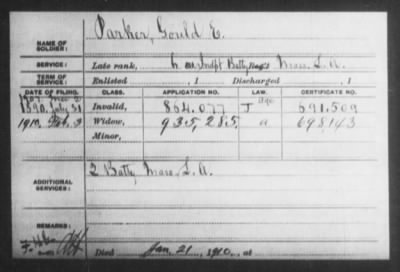 NAME OF SOLDIER: Parker, Gould E.
SERVICE: Late rank, Indpt Batty Reg't Mass. L. A.
TERM OF SERVICE: Enlisted , 1 Discharged , 1
DATE OF FILING. CLASS. APPLICATION NO. LAW. CERTIFICATE NO.
1907.
1890, July 31 Invalid, 864.077 J Age 691,509
1910. Feb. 3 Widow, 935,285. a 698,143
Minor,
ADDITIONAL SERVICES: 2 Batty Mass. L. A.
REMARKS:
Died Jan. 21, 1910, at